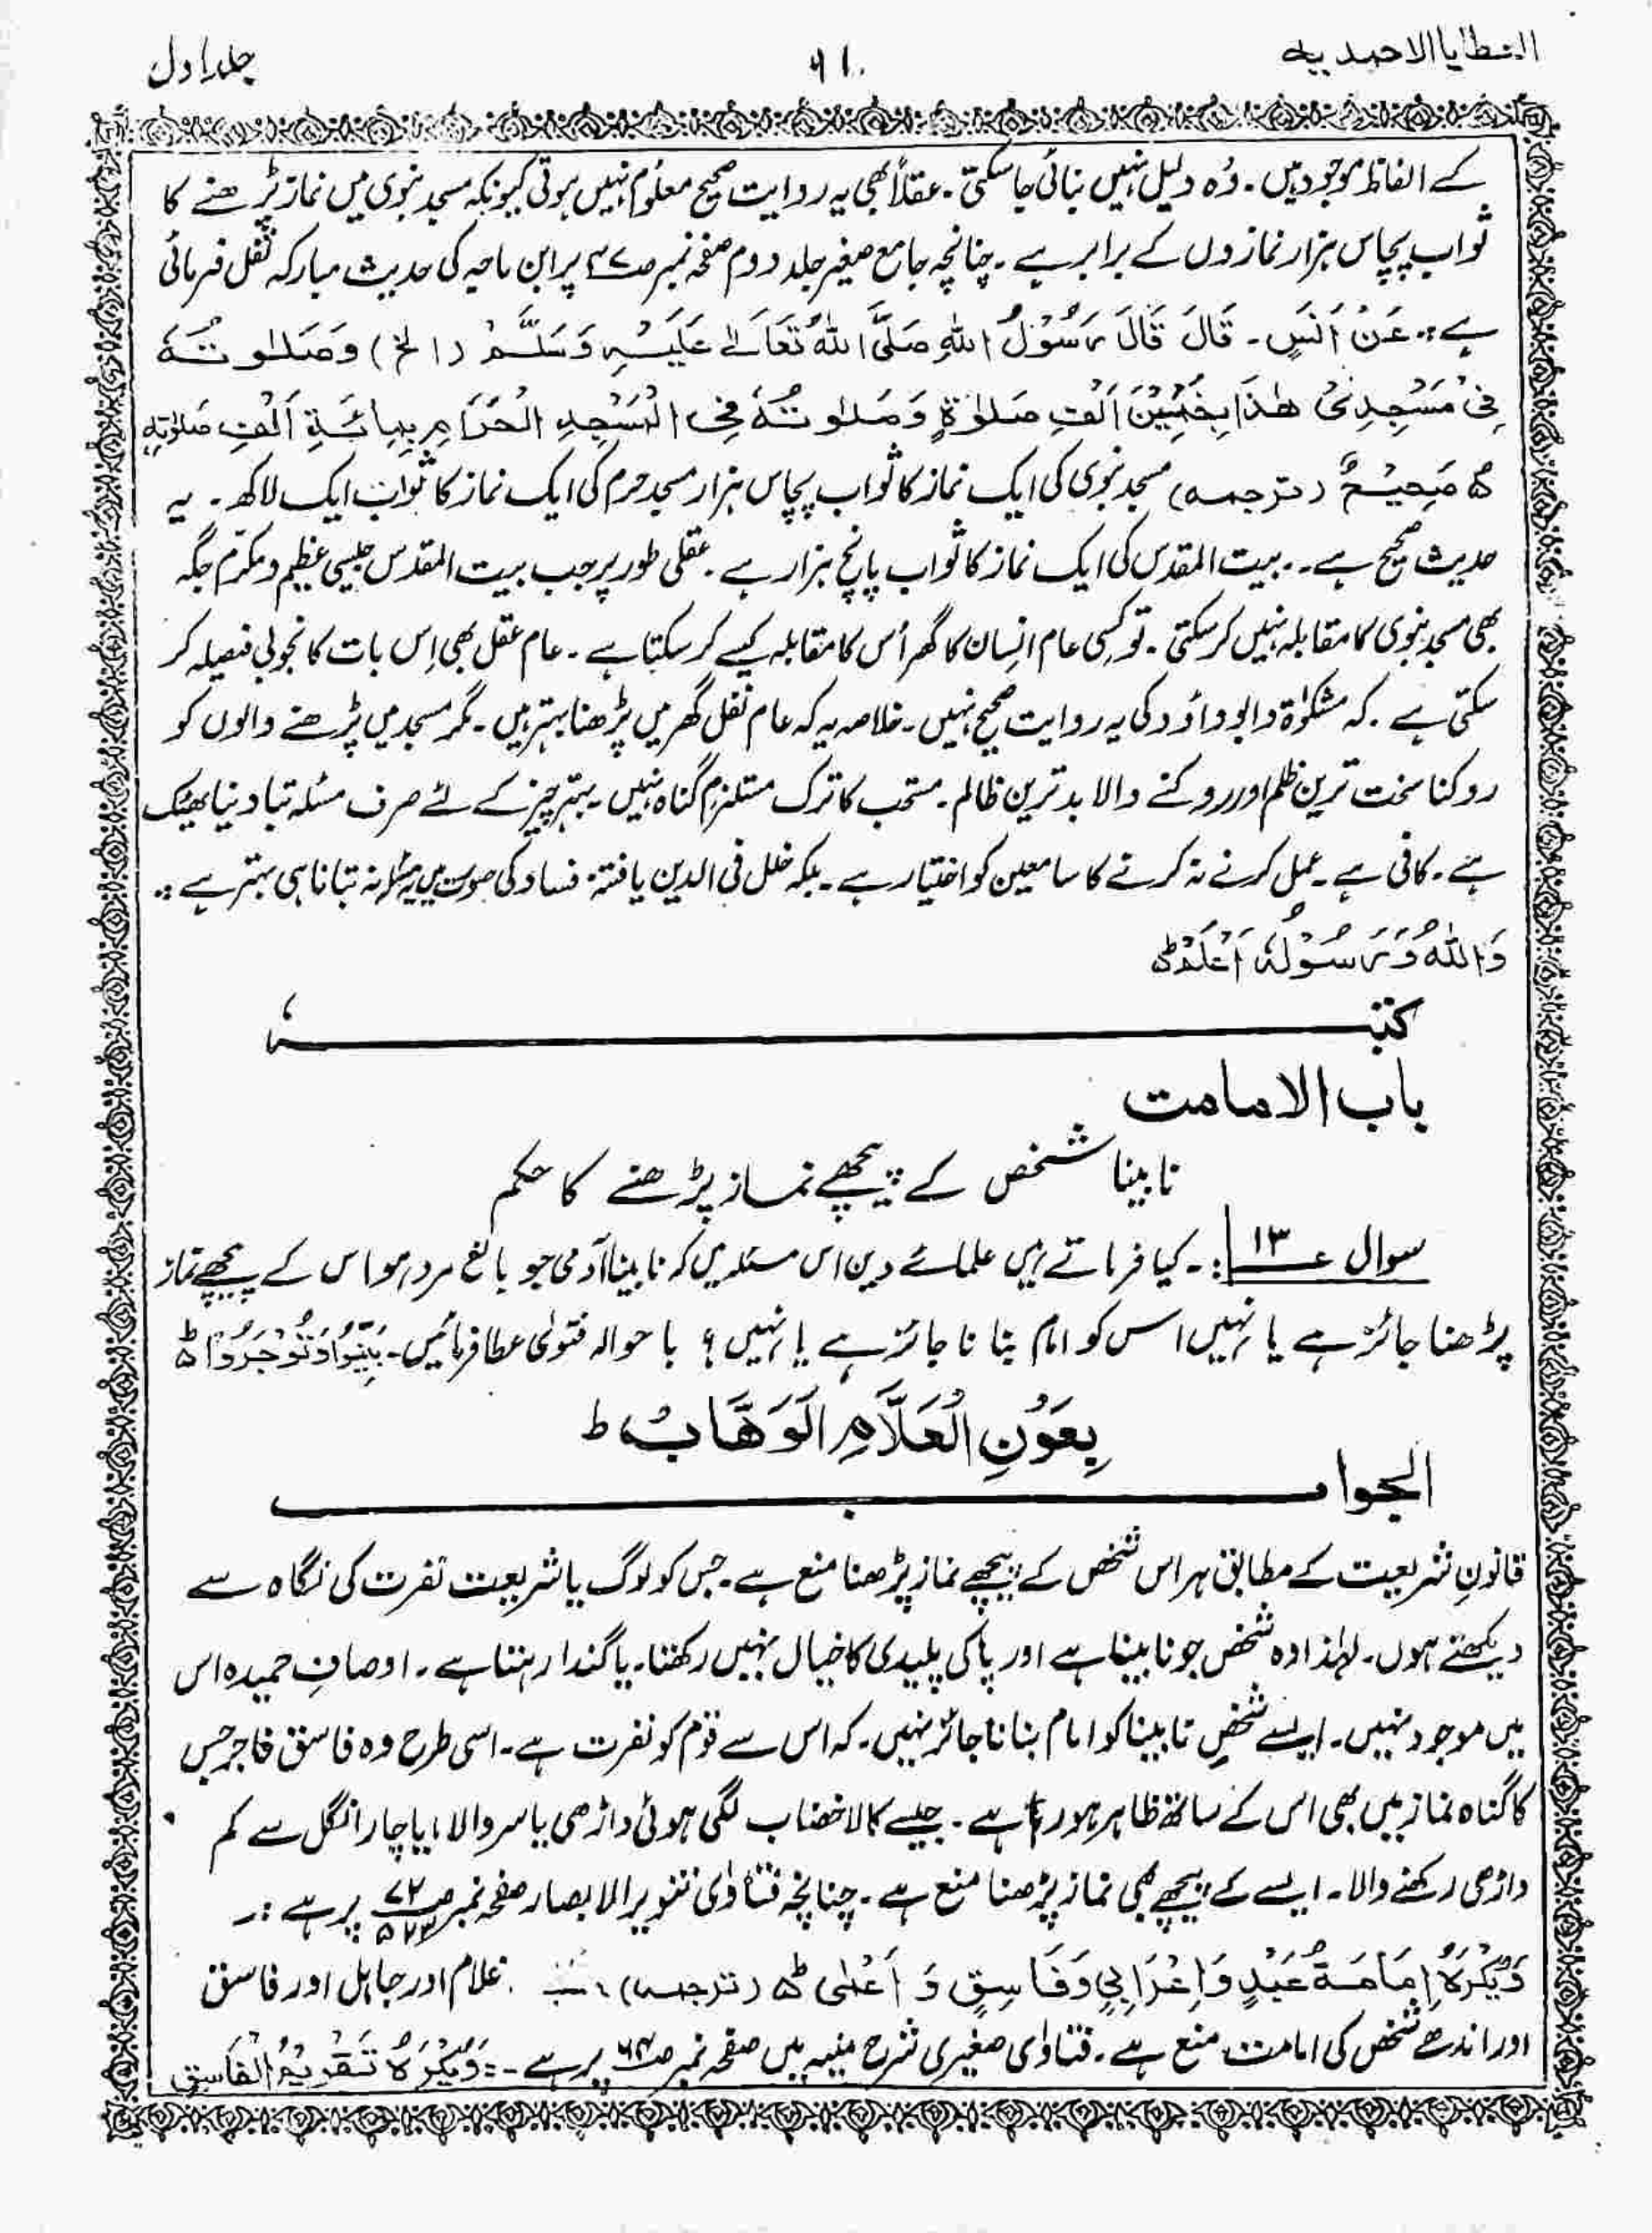 العطایا الاحمدیہ
۹۱
جلد اول
کے الفاظ موجود ہیں۔ وُہ دلیل نہیں بنائی جا سکتی۔ عقلاً بھی یہ روایت صحیح معلوم نہیں ہوتی کیونکہ مسجد نبوی میں نماز پڑھنے کا
ثواب پچاس ہزار نمازوں کے برابر ہے۔ چنانچہ جامع صغیر جلد دوم صفحہ نمبر پر ابن ماجہ کی حدیث مبارکہ نقل فرمائی
ہے:۔ عَنْ اَنَسٍ۔ قَالَ قَالَ رَسُوْلُ اللہِ صَلَّی اللہُ تَعَالٰے عَلَیْہِ وَسَلَّمْ (الخ) وَصَلٰوتُہٗ
فِیْ مَسْجِدِیْ ھٰذَا بِخَمْسِیْنَ اَلْفِ صَلٰوۃٍ وَصَلٰوتُہٗ فِی الْمَسْجِدِ الْحَرَامِ بِمِائَۃِ اَلْفِ صَلٰوتِہٖ
ہ صَحِیْحٌ (ترجمہ) مسجد نبوی کی ایک نماز کا ثواب پچاس ہزار مسجد حرم کی ایک نماز کا ثواب ایک لاکھ۔ یہ
حدیث صحیح ہے۔۔ بیت المقدس کی ایک نماز کا ثواب پانچ ہزار ہے۔ عقلی طور پر جب بیت المقدس جیسی عظیم و مکرّم جگہ
بھی مسجد نبوی کا مقابلہ نہیں کر سکتی۔ تو کسی عام انسان کا گھر اُس کا مقابلہ کیسے کر سکتا ہے۔ عام عقل بھی اِس بات کا بخوبی فیصلہ کر
سکتی ہے۔ کہ مشکوٰۃ و ابو داؤد کی یہ روایت صحیح نہیں۔ خلاصہ یہ کہ عام نفل گھر میں پڑھنا بہتر ہیں۔ مگر مسجد میں پڑھنے والوں کو
روکنا سخت ترین ظلم اور روکنے والا بدترین ظالم۔ مستحب کا ترک مستلزم گناہ نہیں۔ بہتر چیز کے لئے صرف مسئلہ بتا دینا ٹھیک
ہے۔ کافی ہے۔ عمل کرنے نہ کرنے کا سامعین کو اختیار ہے۔ بلکہ خلل فی الدین یا فتنہ فساد کی صورت میں یہ مسئلہ نہ بتانا ہی بہتر ہے:۔
وَاللہُ وَرَسُوْلُہٗ اَعْلَمُ ہ
کتبہٗ
باب الامامت
نابینا شخص کے پیچھے نماز پڑھنے کا حکم
سوال ۱۳:۔ کیا فرماتے ہیں علمائے دین اس مسئلہ میں کہ نابینا آدمی جو بالغ مرد ہو اس کے پیچھے نماز
پڑھنا جائز ہے یا نہیں اس کو امام بنانا جائز ہے یا نہیں؟ باحوالہ فتوٰی عطا فرمائیں۔ بَیِّنُوْا وَتُوْجَرُوْا ہ
بِعَوْنِ الْعَلَّامِ الْوَھَّابِ ط
الجواب
قانونِ شریعت کے مطابق ہر اس شخص کے پیچھے نماز پڑھنا منع ہے۔ جس کو لوگ یا شریعت نفرت کی نگاہ سے
دیکھتے ہوں۔ لہٰذا وہ شخص جو نابینا ہے اور پاکی پلیدی کا خیال نہیں رکھتا۔ یا گندا رہتا ہے۔ اوصافِ حمیدہ اس
میں موجود نہیں۔ ایسے شخصِ نابینا کو امام بنانا جائز نہیں۔ کہ اس سے قوم کو نفرت ہے۔ اسی طرح وہ فاسق فاجر جس
کا گناہ نماز میں بھی اس کے ساتھ ظاہر ہو رہا ہے۔ جیسے کالا خضاب لگی ہوئی داڑھی یا سر والا، یا چار انگل سے کم
داڑھی رکھنے والا۔ ایسے کے پیچھے بھی نماز پڑھنا منع ہے۔ چنانچہ فتاوٰی تنویر الابصار صفحہ نمبر پر ہے:۔
وَیُکْرَہُ اِمَامَۃُ عَبْدٍ وَاِعْرَابِیٍ وَفَاسِقٍ وَ اَعْمٰی ہ (ترجمہ) غلام اور جاہل اور فاسق
اور اندھے شخص کی امامت منع ہے۔ فتاوٰی صغیری شرح منیہ میں صفحہ نمبر پر ہے۔:۔ وَیُکْرَہُ تَقْدِیْمُ الْفَاسِقِ